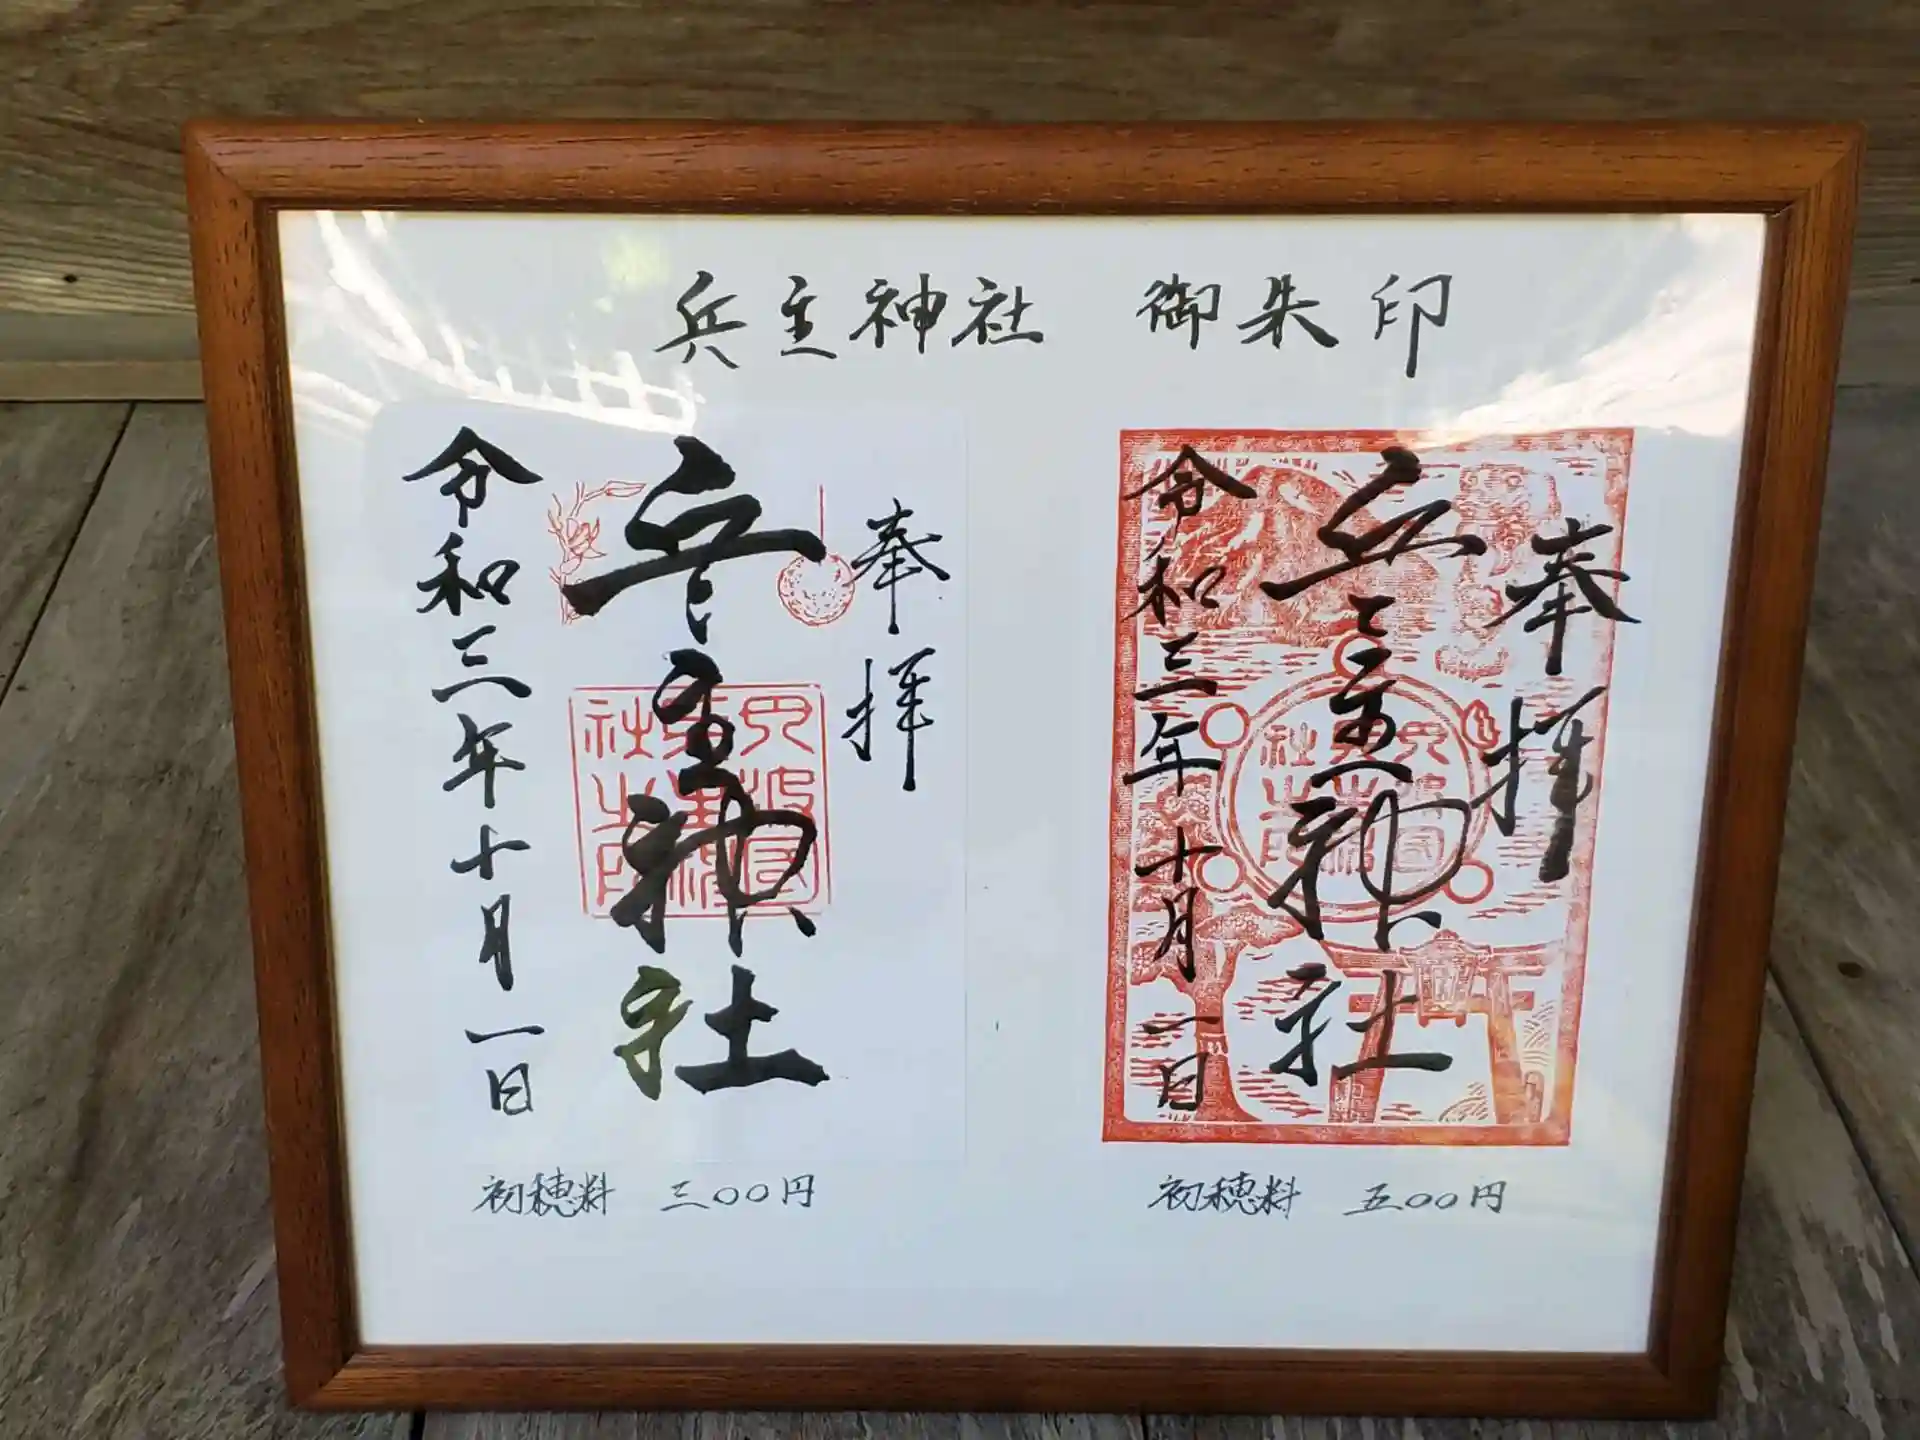 兵主神社 御朱印
奉拝
兵主神社
令和三年十月一日
初穂料 三〇〇円
奉拝
兵主神社
令和三年十月一日
初穂料 五〇〇円